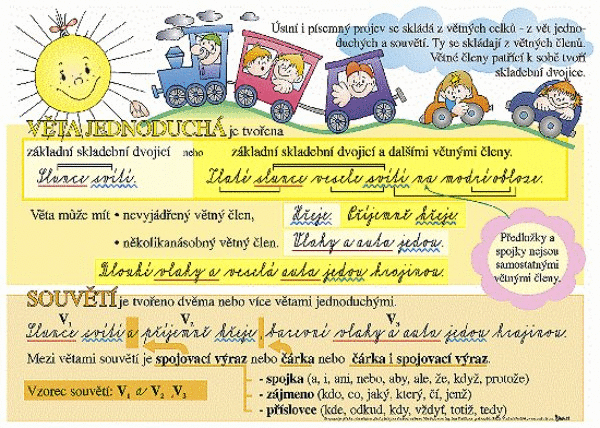 Ústní i písemný projev se skládá z větných celků - z vět jedno-
duchých a souvětí. Ty se skládají z větných členů.
Větné členy patřící k sobě tvoří
skladební dvojice.
VĚTA JEDNODUCHÁ je tvořena
základní skladební dvojicí nebo základní skladební dvojicí a dalšími větnými členy.
Slunce svítí. Zlaté slunce vesele svítí na modré obloze.
Věta může mít • nevyjádřený větný člen, Hřeje. Příjemně hřeje.
• několikanásobný větný člen. Vlaky a auta jedou.
Dlouhé vlaky a veselá auta jedou krajinou.
Předložky a
spojky nejsou
samostatnými
větnými členy.
SOUVĚTÍ je tvořeno dvěma nebo více větami jednoduchými.
V1 V2 V3
Slunce svítí a příjemně hřeje, barevné vlaky a auta jedou krajinou.
Mezi větami souvětí je spojovací výraz nebo čárka nebo čárka i spojovací výraz.
Vzorec souvětí: V1 a V2 ,V3
- spojka (a, i, ani, nebo, aby, ale, že, když, protože)
- zájmeno (kdo, co, jaký, který, čí, jenž)
- příslovce (kde, odkud, kdy, vždyť, totiž, tedy)